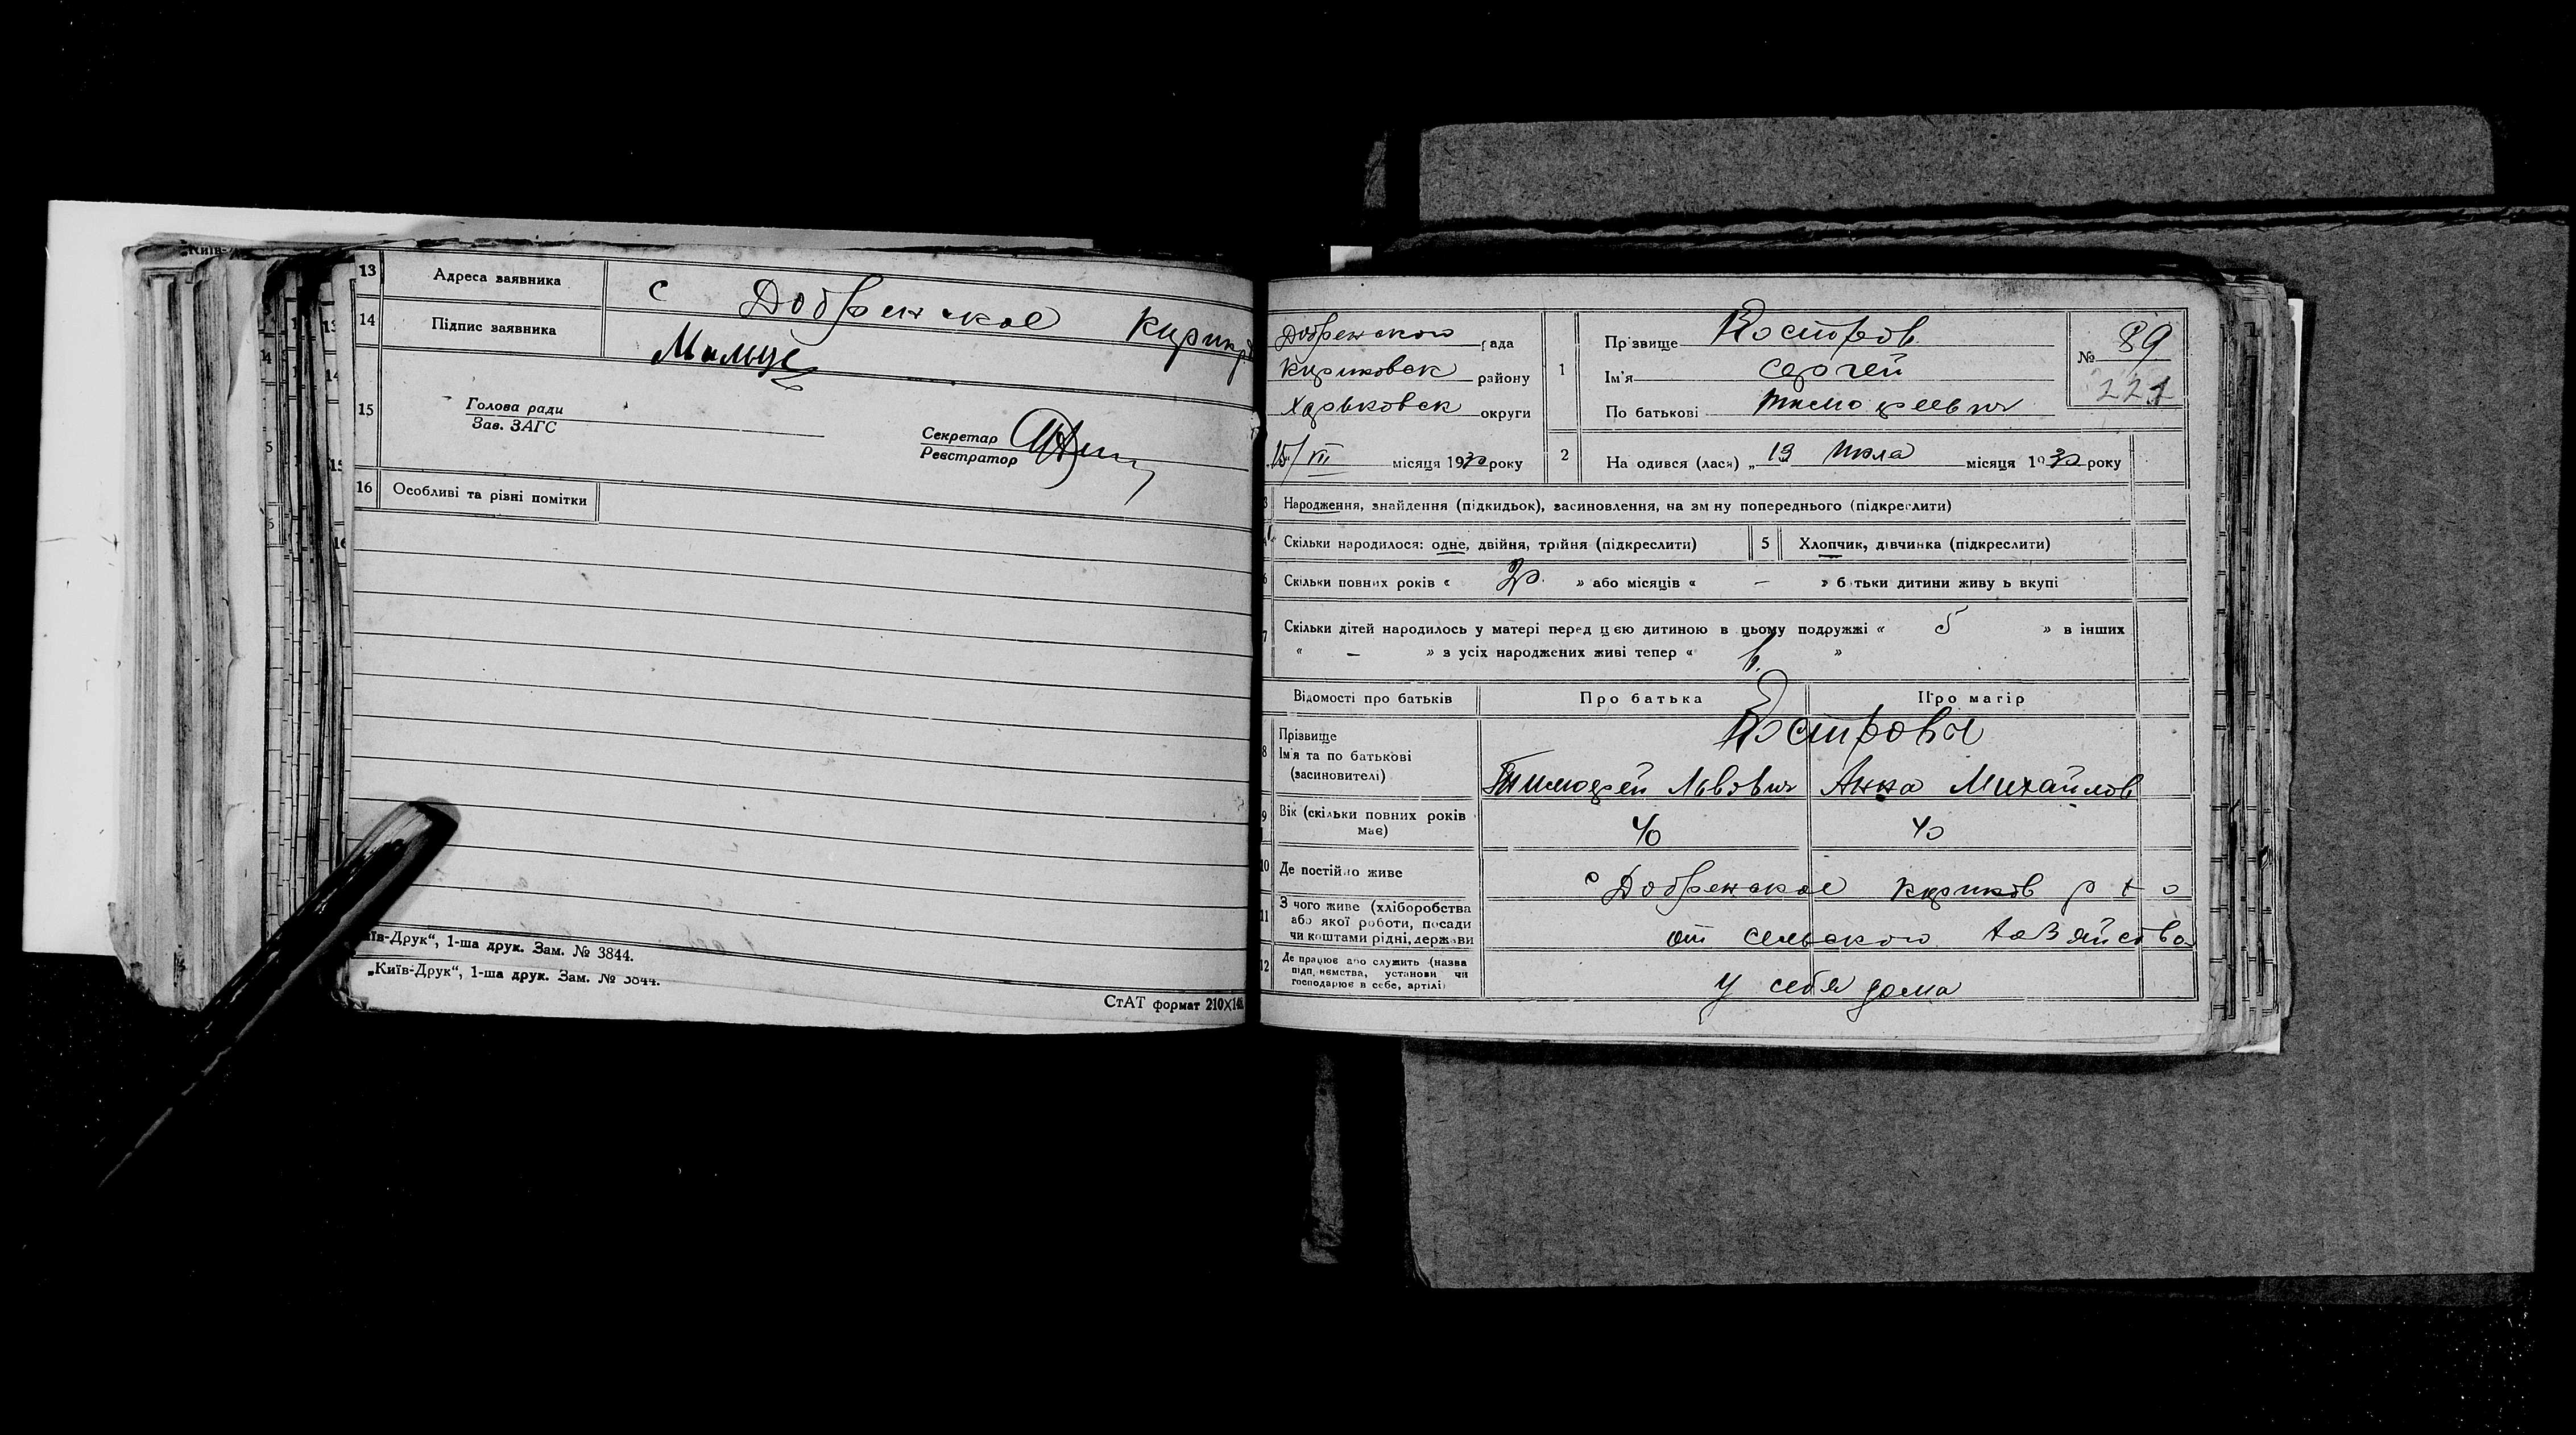 Київ-
13 Адреса заявника с Добренское Кирик р
14 Підпис заявника Мальце
15 Голова ради
Зав. ЗАГС
Секретар
Реєстратор
16 Особливі та різні помітки
їв-Друк“, 1-ша друк. Зам. № 3844.
„Київ-Друк“, 1-ша друк. Зам. № 3844.
СтАТ формат 210×14
Добренского рада
Кириковск району
Харьковск округи
15/VII місяця 1930 року
1 Прізвище Костров
Ім'я Сергей
По батькові Тимофеевич
№ 89
221
2 Народився (лася) „ 13 Июля місяця 1930 року
3 Народження, знайдення (підкидьок), засиновлення, на зміну попереднього (підкреслити)
Скільки народилося: одне, двійня, трійня (підкреслити)
5 Хлопчик, дівчинка (підкреслити)
6 Скільки повних років « 20 » або місяців « — » батьки дитини живуть вкупі
7 Скільки дітей народилось у матері перед цією дитиною в цьому подружжі « 5 » в інших
« — » з усіх народжених живі тепер « 6. »
Відомості про батьків Про батька Про матір
8 Прізвище
Ім'я та по батькові
(засиновителі)
Костровы
Тимофей Львович Анна Михайлов
9 Вік (скільки повних років має) 40 40
10 Де постійно живе с Добренское Кириков р х о
11 З чого живе (хліборобства
або якої роботи, посади
чи коштами рідні, держави
от сельского хазяйства
12 Де працює або служить (назва
підприємства, установи чи
господарює в себе, артілі)
у себя дома